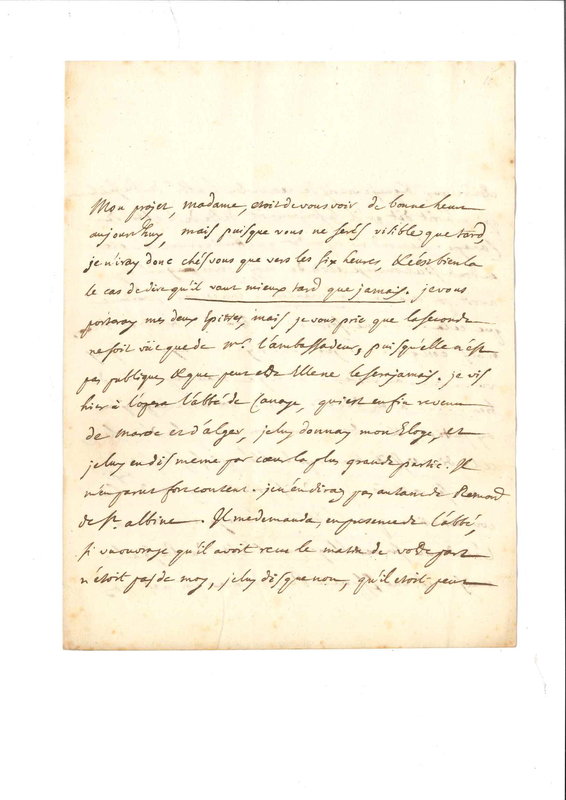 Mon projet, madame, etoit de vous voir de bonne heure
aujourd'huy, mais puisque vous ne serés visible que tard,
je n'iray donc chés vous que vers les six heures, & c'est bien la
le cas de dire qu'il vaut mieux tard que jamais. je vous
porteray mes deux Epitres, mais je vous prie que la seconde
ne soit vüe que de Mr. l'ambassadeur, puisqu'elle n'est
pas publique, & que peut etre Elle ne le sera jamais. je vis
hier à l'opera l'abbé de Canaye, qui est enfin revenu
de maroc et d'alger, je luy donnay mon Eloge, et
je luy en dis meme par cœur la plus grande partie. Il
m'en parut fort content. je n'en diray pas autant de Remond
de St. albine. Il me demanda, en presence de l'abbé,
si un ouvrage qu'il avoit reçu le matin de votre part
n'étoit pas de moy, je luy dis que non, qu'il etoit peut